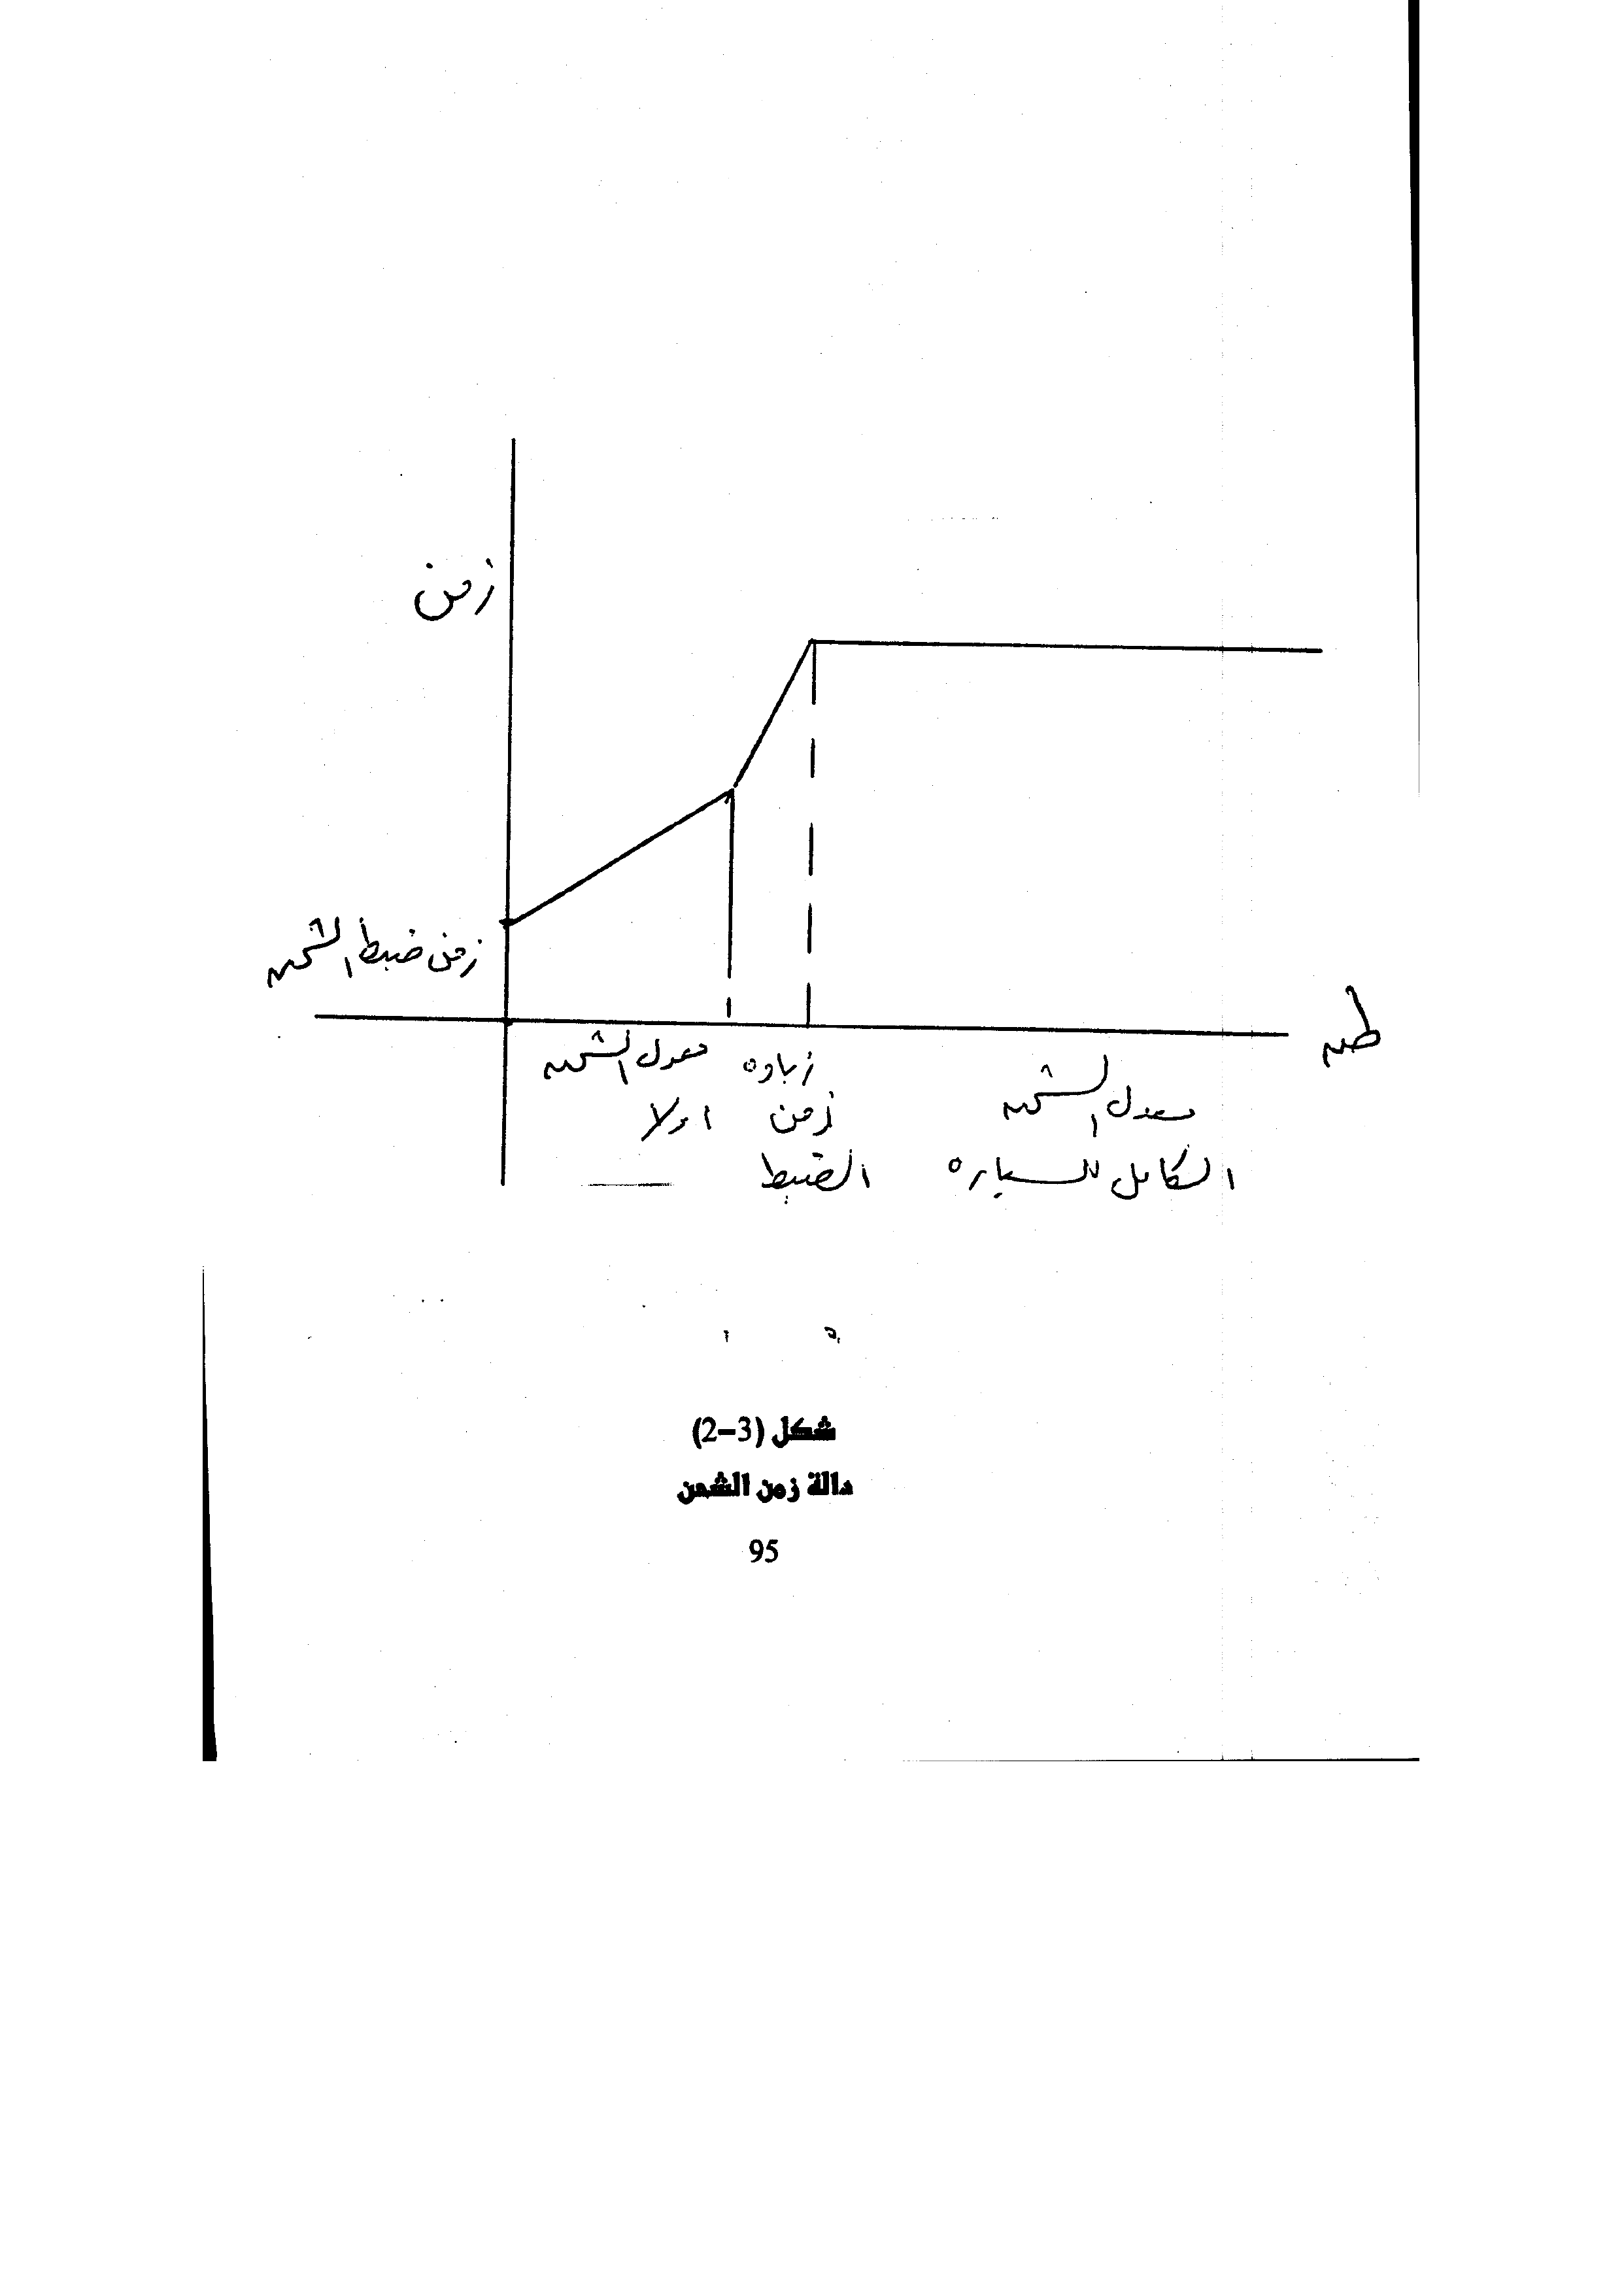 زمن
زمن ضبط الشحن
طن
معدل الشحن
اولا
زياده
زمن
الضبط
معدل الشحن
الكامل للسياره
شكل (3–2)
دالة زمن الشحن
95